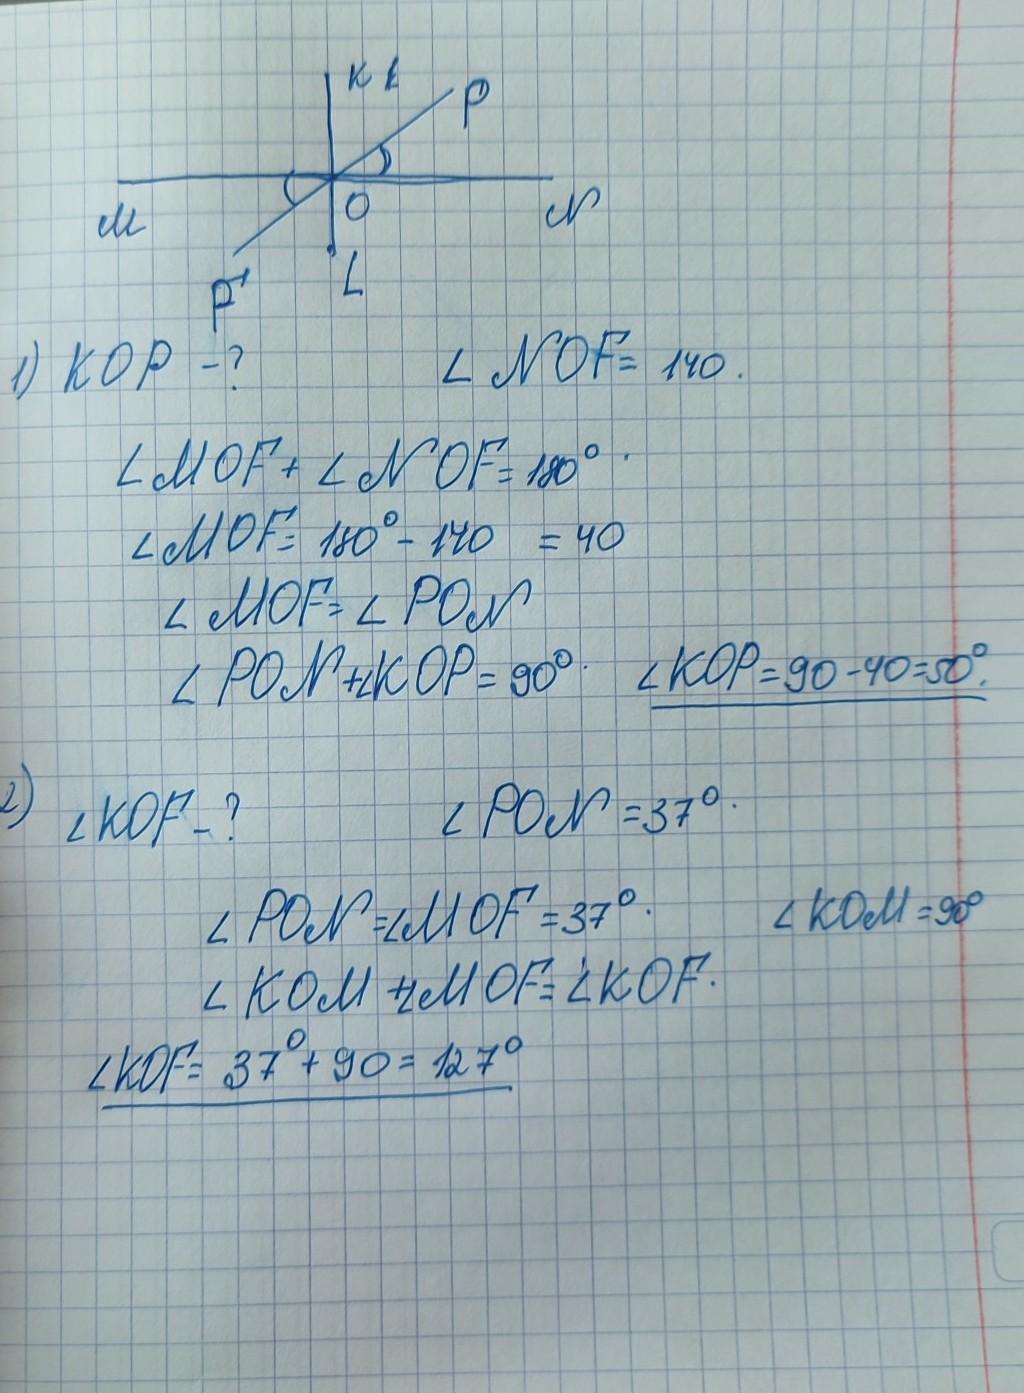 K
P
M
O
N
F
L
1) KOP - ?
∠ NOF = 140.
∠MOF + ∠NOF = 180°.
∠MOF = 180° - 140 = 40
∠ MOF = ∠ PON
∠ PON + ∠KOP = 90°. ∠KOP = 90 - 40 = 50°.
2) ∠KOF - ?
∠ PON = 37°.
∠ PON = ∠MOF = 37°. ∠ KOM = 90°
∠ KOM + ∠MOF = ∠KOF.
∠KOF = 37° + 90 = 127°